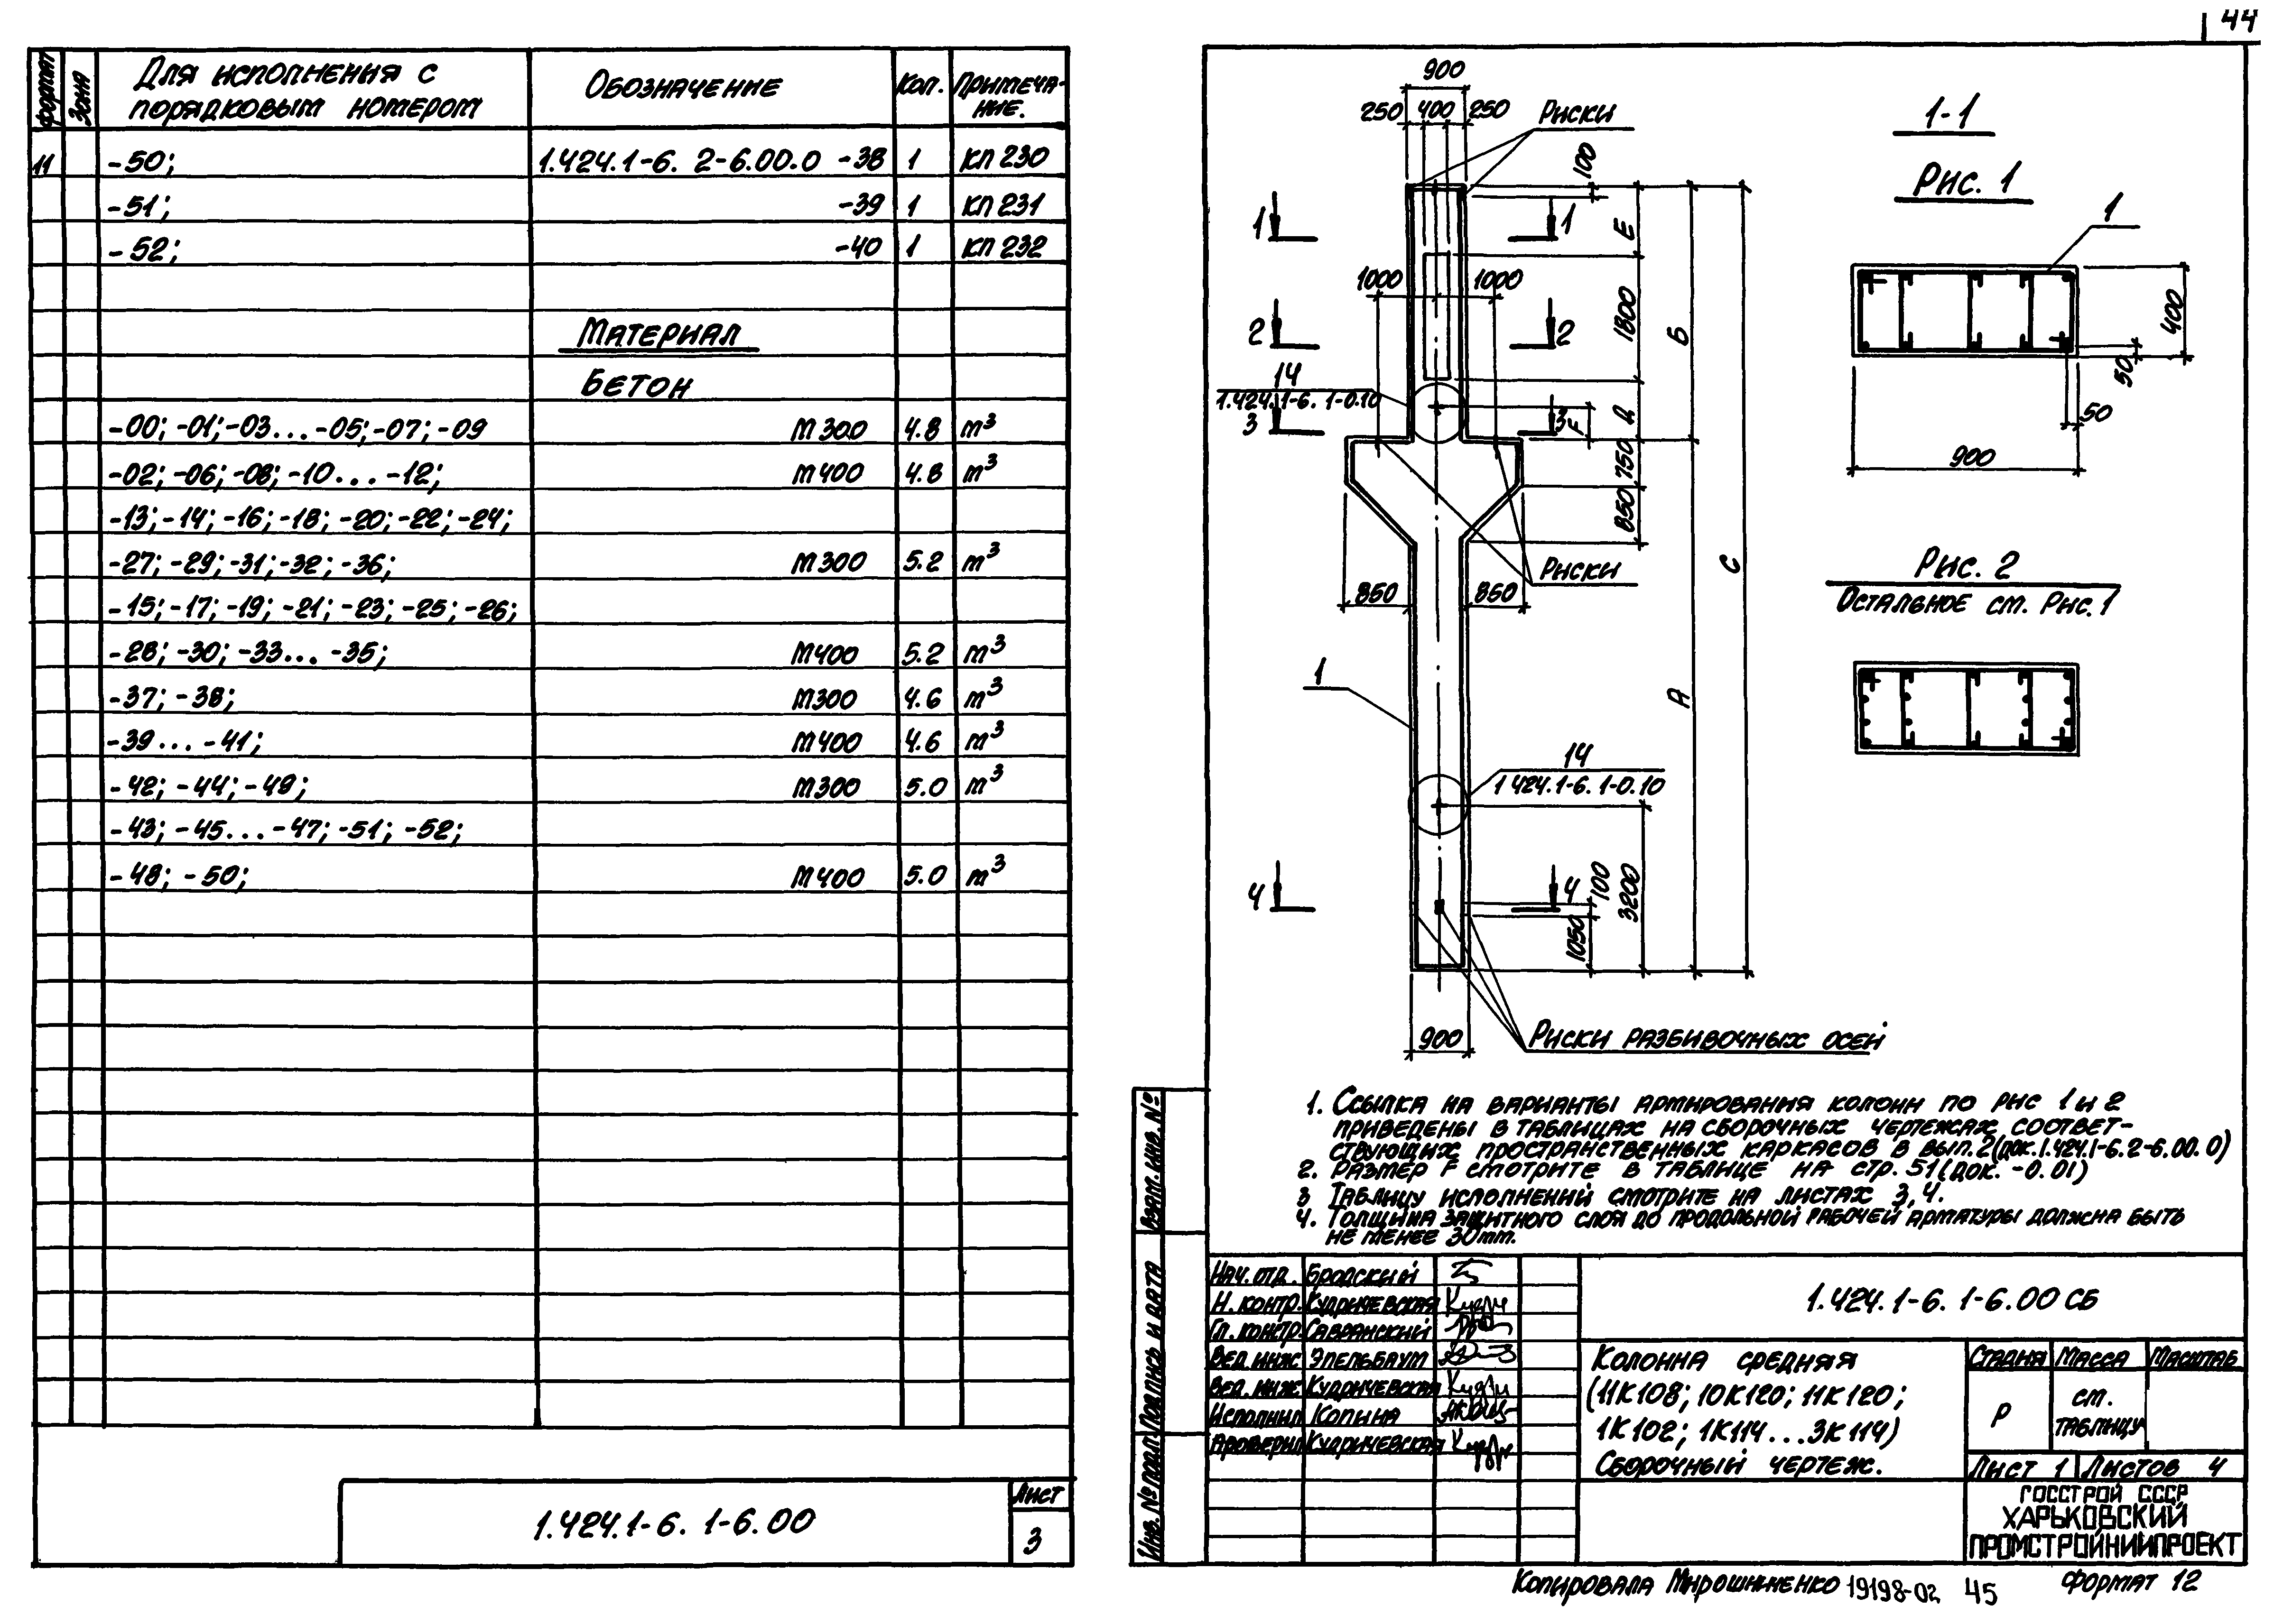 44
формат
Зона
Для исполнения с
порядковым номером
Обозначение
Кол.
Примеча-
ние.
11 -50; 1.424.1-6. 2-6.00.0 -38 1 КП 230
-51; -39 1 КП 231
-52; -40 1 КП 232
Материал
Бетон
-00; -01; -03... -05; -07; -09 М300 4.8 m³
-02; -06; -08; -10... -12; М400 4.8 m³
-13; -14; -16; -18; -20; -22; -24;
-27; -29; -31; -32; -36; М300 5.2 m³
-15; -17; -19; -21; -23; -25; -26;
-28; -30; -33... -35; М400 5.2 m³
-37; -38; М300 4.6 m³
-39... -41; М400 4.6 m³
-42; -44; -49; М300 5.0 m³
-43; -45... -47; -51; -52;
-48; -50; М400 5.0 m³
1.424.1-6. 1-6.00
Лист
3
900
250 400 250
Риски
100
1 1
Е
1000 1000
2 2
1800
Б
14
1.424.1-6. 1-0.10
3 3
F
Д
750
850
С
Риски
850 850
1
А
14
1.424.1-6. 1-0.10
4 4
100
3200
1050
900
Риски разбивочных осей
1-1
Рис. 1
1
400
50
50
900
Рис. 2
Остальное см. Рис. 1
1. Ссылка на варианты армирования колонн по рис 1 и 2
приведены в таблицах на сборочных чертежах соответ-
ствующих пространственных каркасов в вып.2(док.1.424.1-6.2-6.00.0)
2. Размер F смотрите в таблице на стр.51(док. -0.01)
3 Таблицу исполнений смотрите на листах 3,4.
4. Толщина защитного слоя до продольной рабочей арматуры должна быть
не менее 30mm.
Взам. инв. №
Подпись и дата
Инв. № подл.
Нач. отд. Бродский
Н. контр. Кудричевская
Гл. констр. Савранский
Вед. инж Эпельбаум
Вед. инж Кудричевская
Исполнил Копина
Проверил Кудричевская
1.424.1-6. 1-6.00 СБ
Колонна средняя
(11К108; 10К120; 11К120;
1К102; 1К114...3К114)
Сборочный чертеж.
Стадия Масса Масштаб
Р см.
таблицу
Лист 1 Листов 4
ГОССТРОЙ СССР
ХАРЬКОВСКИЙ
ПРОМСТРОЙНИИПРОЕКТ
Копировала Мирошниченко 19198-02 45 Формат 12